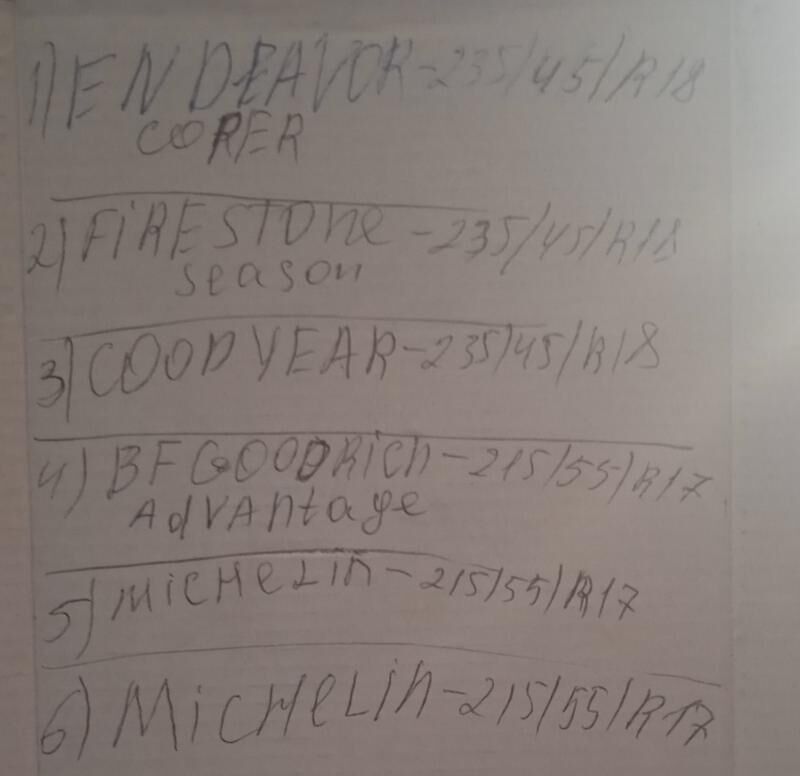 1) ENDEAVOR-235/45/R18
COPER
2) FiRESTONe-235/45/R18
season
3) COODYEAR-235/45/R18
4) BFGOODRich-215/55/R17
AdVAntage
5) MiCHeLin-215/55/R17
6) MiCHeLin-215/55/R17